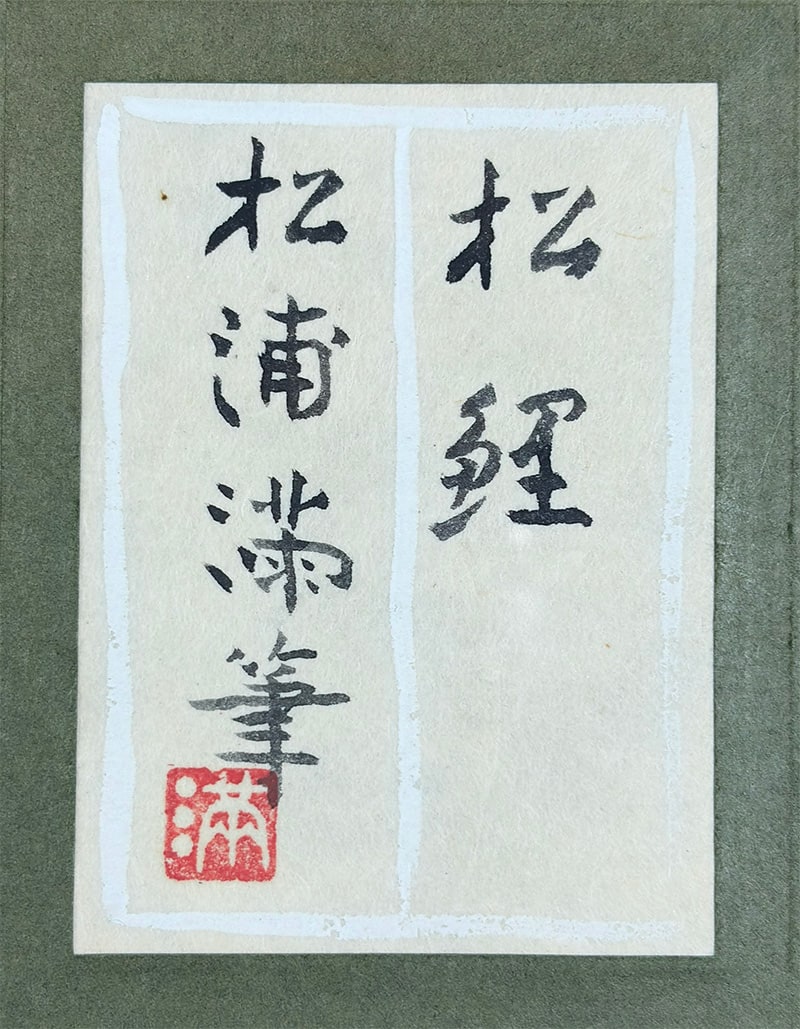 松鯉
松浦満筆
満